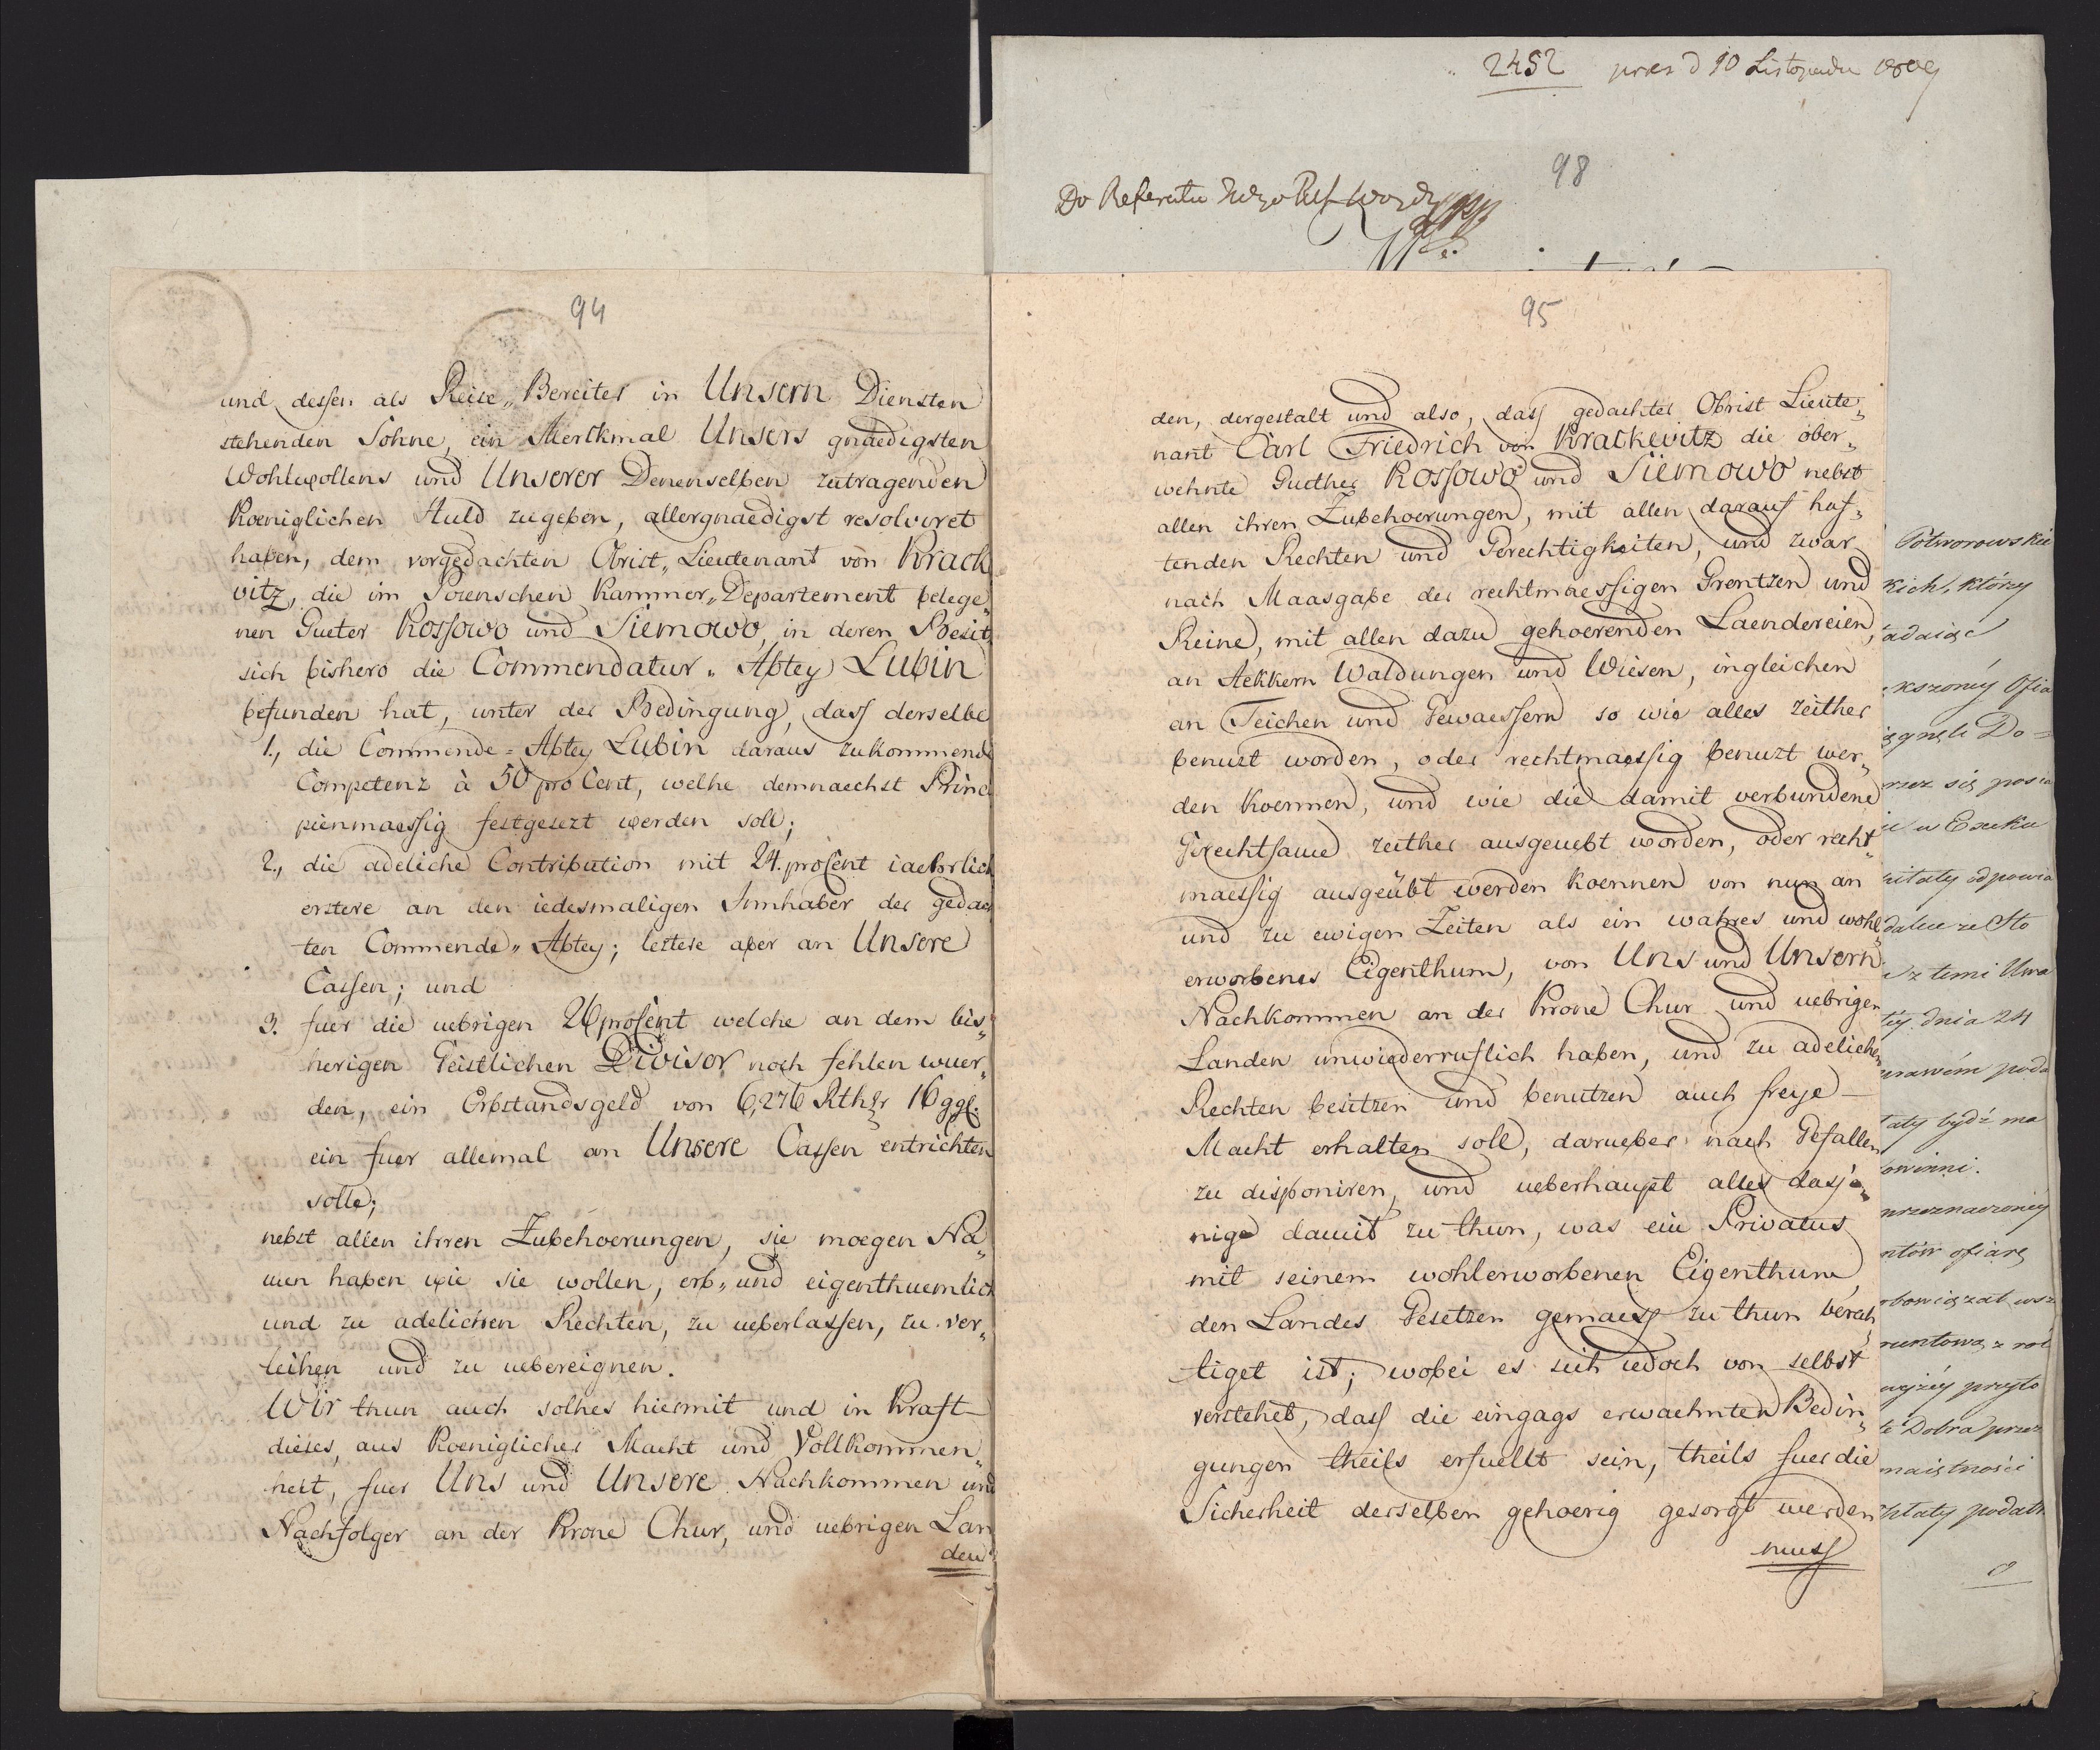 94
und dessen als Reise„Bereiter in Unsern Diensten
stehenden Sohne, ein Merckmal Unsers gnaedigsten
Wohlwollens und Unserer Denenselben zutragenden
Koeniglichen Huld zu geben, allergnaedigst resolviret
haben, dem vorgedachten Obrist„Lieutenant von Krack
vitz, die im Posenschen Kammer„Departement belege„
nen Gueter Rossowo und Siemowo, in deren Besitz
sich bishero die Commendatur„Abtey Lubin
befunden hat, unter der Bedingung, dass derselbe
1., die Commende=Abtey Lubin daraus zukommende
Competenz à 50 pro Cent, welhe demnaechst Princi
pienmaessig festgesezt werden soll;
2., die adeliche Contribution mit 24. proCent iaehrlich
erstere an den iedesmaligen Innhaber der gedach
ten Commende„Abtey; leztere aber an Unsere
Cassen; und
3. fuer die uebrigen 26 proCent welche an dem bis„
herigen Geistlichen Divisor noch fehlen wuer„
den, ein Erbstandsgeld von 6,276 Rthlr 16 ggl.
ein fuer allemal an Unsere Cassen entrichten
solle;
nebst allen ihren Zubehoerungen, sie moegen Na„
men haben wie sie wollen, erb„und eigenthuemlich
und zu adelichen Rechten, zu ueberlassen, zu ver„
leihen und zu uebereignen.
Wir thun auch solhes hiermit und in Kraft
dieses, aus Koeniglicher Macht und Vollkommen„
heit, fuer Uns und Unsere Nachkommen und
Nachfolger an der Krone Chur, und uebrigen Lan
den
2452 praes d 10 Listopada 1809
98
Do Referatu
95
den, dergestalt und also, dass gedachter Obrist Lieute„
nant Carl Friedrich von Krackevitz die ober„
wehnte Guether Rossowo und Siemowo nebst
allen ihren Zubehoerungen, mit allen darauf haf„
tenden Rechten und Gerechtigkeiten, und zwar
nach Maasgabe der rechtmaessigen Grentzen und
Reine, mit allen dazu gehoerenden Laendereien,
an Aekkern Waldungen und Wiesen, ingleichen
an Teichen und Gewaessern so wie alles zeither
benuzt worden, oder rechtmaessig benuzt wer„
den koennen, und wie die damit verbundene
Gerechtsame zeither ausgeuebt worden, oder recht„
maessig ausgeübt werden koennen von nun an
und zu ewigen Zeiten als ein wahres und wohl
erworbenes Eigenthum, von Uns und Unsern
Nachkommen an der Krone Chur und uebrigen
Landen unwiederruflich haben, und zu adelichen
Rechten besitzen und benutzen auch freye
Macht erhalten soll, darueber nach Gefallen
zu disponiren, und ueberhaupt alles dasje„
nige damit zu thun, was ein Privatus
mit seinem wohlerworbenen Eigenthum,
den Landes Gesetzen gemaess zu thun berech„
tiget ist; wobei es sich iedoch von selbst
verstehet, dass die eingags erwaehnten Bedin„
gungen theils erfuellt sein, theils fuer die
Sicherheit derselben gehoerig gesorgt werden
muss
Potworowskie
kich, którzy
kszoney Ofia
Do=
się
w Exeku
odpowia
ze Sto
z temi Uwa
dnia 24
poda
bydź ma
owinni.
przeznaczoney
ofiarę
obowiązał
z
przyto
te Dobra przez
podatk